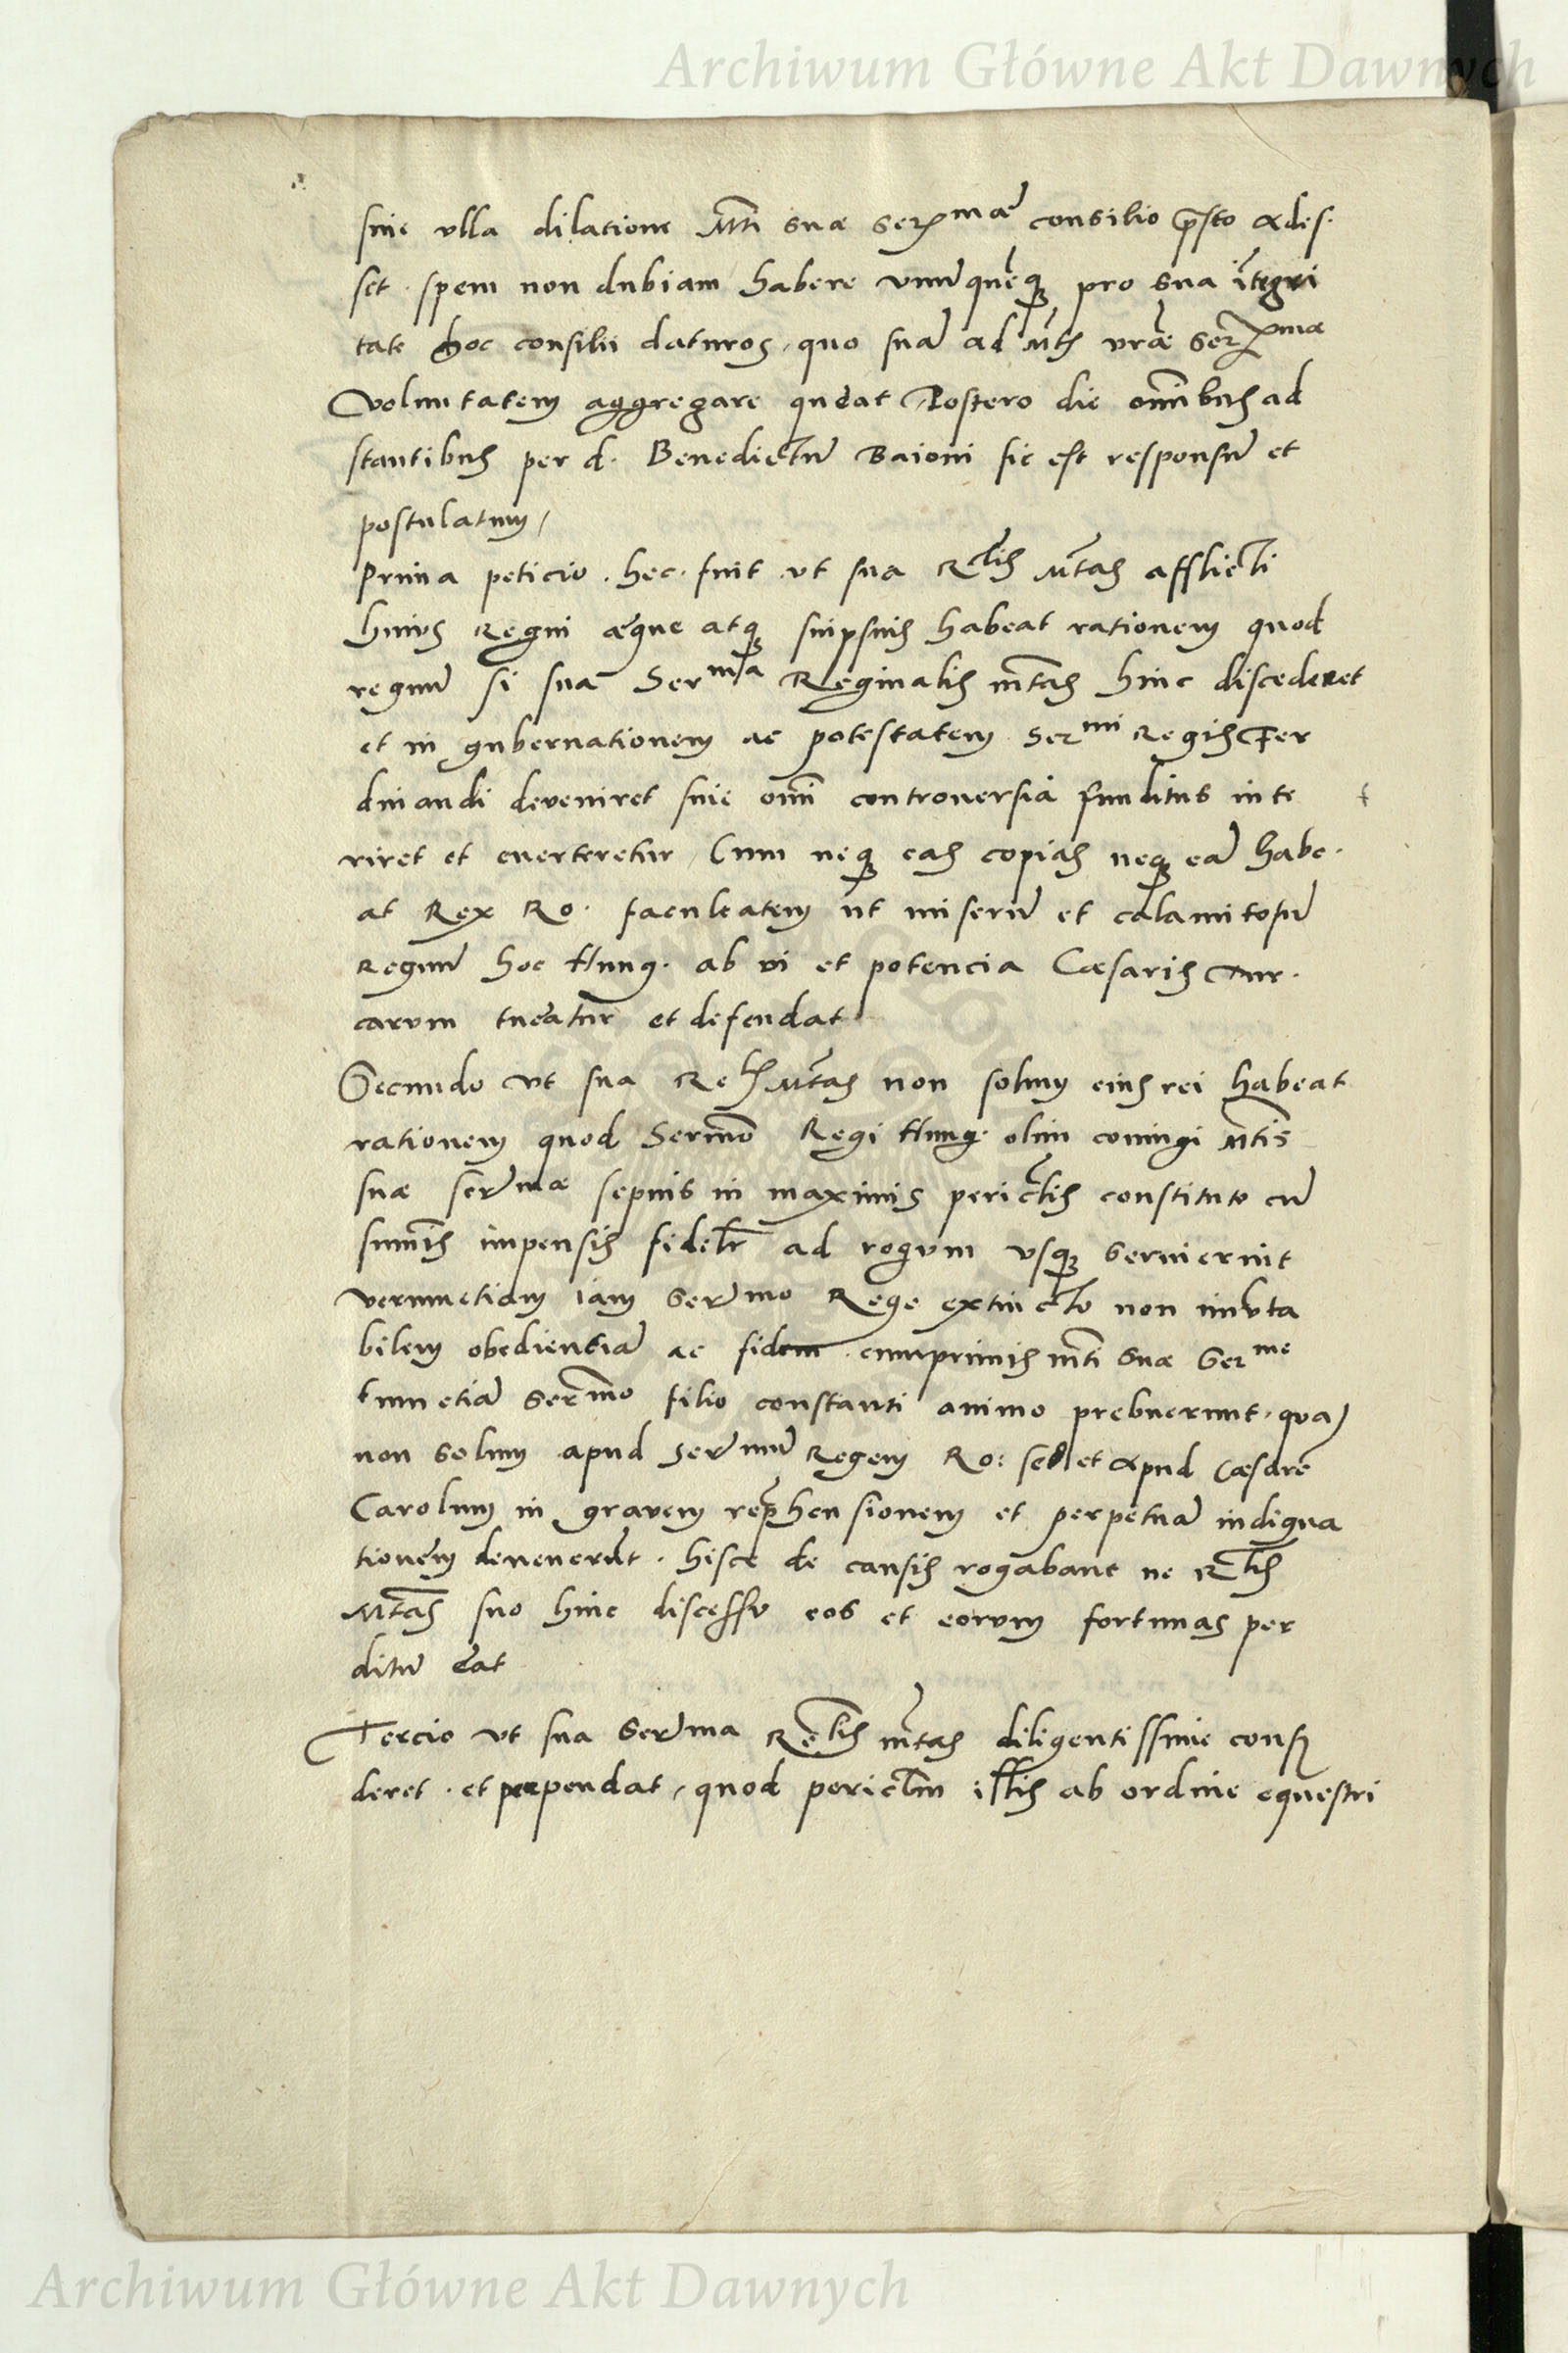 Archiwum Główne Akt Dawnych
sine vlla dilatione Mti suæ Serma consilio prsto ades.
set. spem non dubiam habere vnuquēq pro sua ītegri
tate hoc consilii daturos, quo suā ad Mtis vrāe Serenmæ
Voluntatem aggregare queat Postero die omībus ad
stantibus per d. Benedictū Baioni sic est responsū et
postulatum /
Prima peticio. hec. fuit. vt sua Rctlis Mtas afflicti
huius Regni æque atq suipsius habeat rationem quod
regnū si suā Serma Reginalis mtas hinc discederet
et in gubernationem ac potestatem Sermi Regis Fer
dinandi deveniret sine omī controversia funditus inte
riret et euerteretur, Cum neq eas copias neq eā habe.
at Rex Ro. facultatem ut miserū et calamitosū
Regnū hoc Hung. ab vi et potencia Cæsaris Tur.
carvm tueatur et defendat
Secundo vt sua Relis Mtas non solum eius rei habeat
rationem quod Sermo Regi Hung. olim coniugi Mtis
suæ sermæ sepius in maximis periclis constituto cū
summis impensis fidelr ad rogvm vsq seruierint
verumetiam iam Sermo Rege extincto non imvta
bilem obedientiā ac fidem cumprimis mti suæ Serme
tum etiā Sermo filio constanti animo prebuerunt. qua
non solum apud Sermū Regem Ro: sed et apud Cæsarē
Carolum in gravem reprhensionem et perpetuā indigna
tionem devenerūt. hisce de causis rogabant ne Rctlis
Mtas suo hinc discessv eos et eorvm fortunas per
ditū eat
Tercio vt sua Serma Retlis mtas diligentissime consy
deret. et perpendat, quod periclm istis ab ordine equestri
Archiwum Główne Akt Dawnych